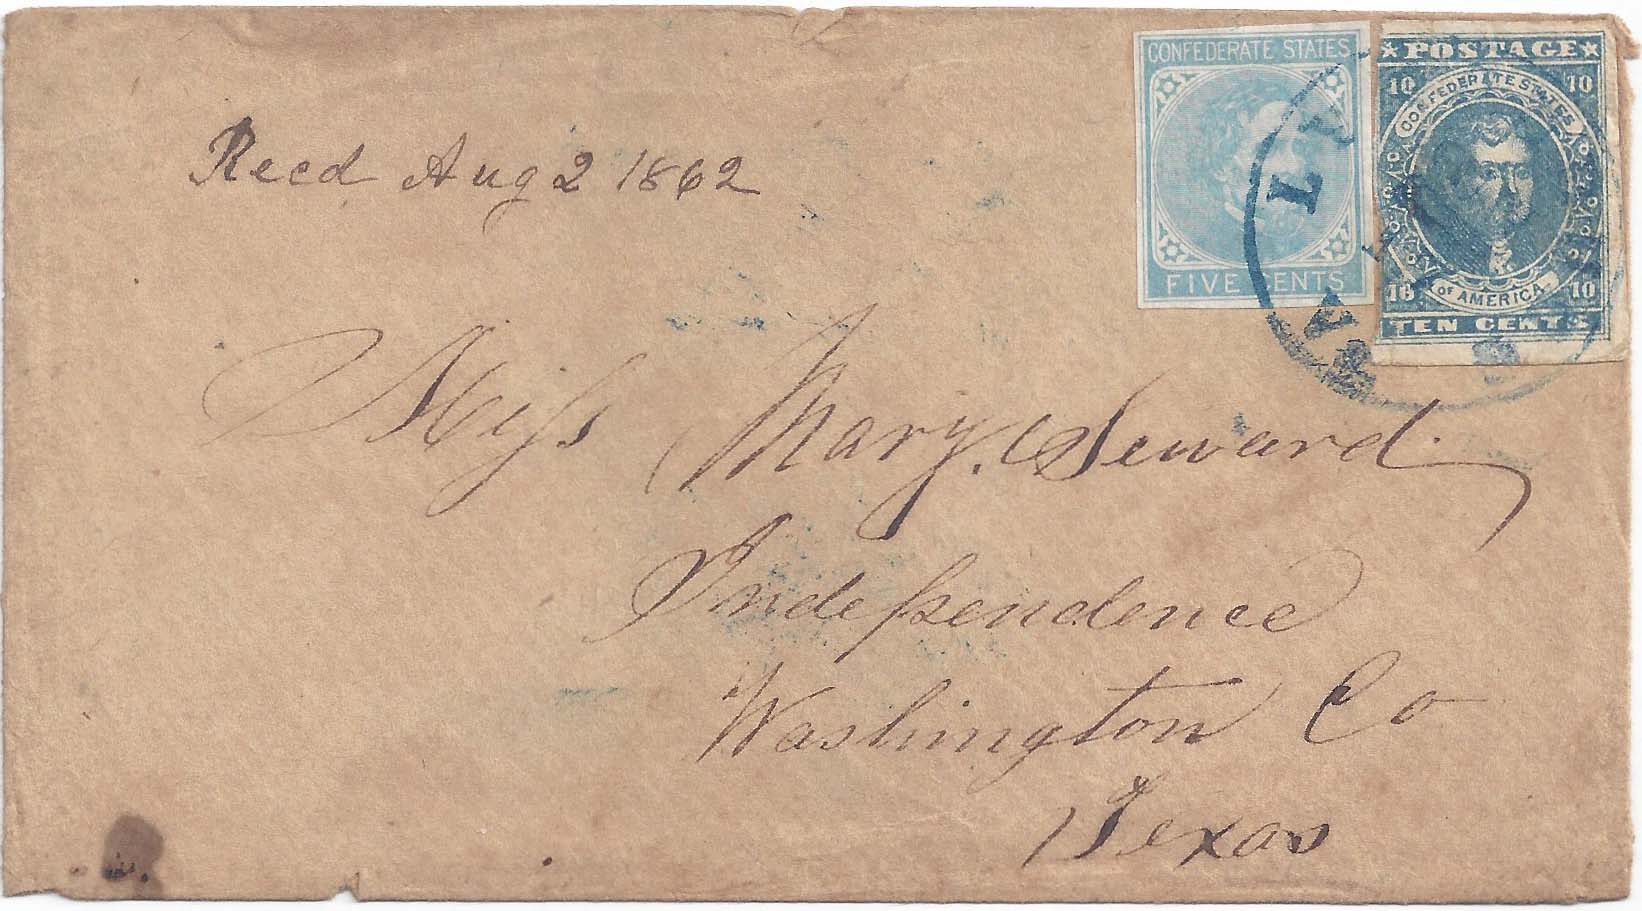 CONFEDERATE STATES
FIVE CENTS
POSTAGE
10 10
CONFEDERATE STATES
OF AMERICA
10 10
TEN CENTS
Recd Aug 2 1862
Miss Mary. Seward.
Independence
Washington Co
Texas